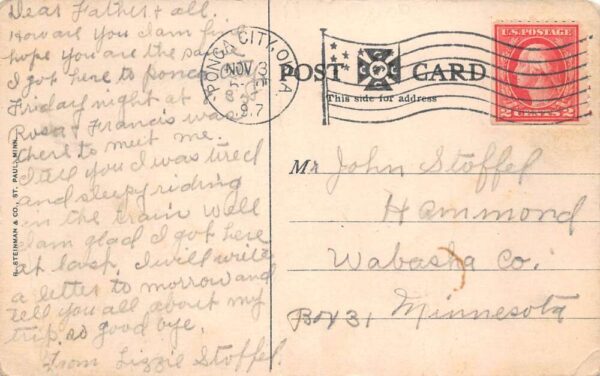 Dear Father & all.
How are you I am fine
hope you are the same
I got here to Ponca
Friday night at
Rosa & Francis was
there to meet me.
I tell you I was tired
and sleepy riding
in the train well
I am glad I got here
at last. I will write
a letter to morrow and
tell you all about my
trip. so good bye.
From Lizzie Stoffel.
R. STEINMAN & CO., ST. PAUL, MINN.
PONCA CITY, OKLA.
NOV
POST CARD
This side for address
U.S. POSTAGE
2 CENTS 2
Mr John Stoffel
Hammond
Wabasha Co.
Minnesota
Box 31